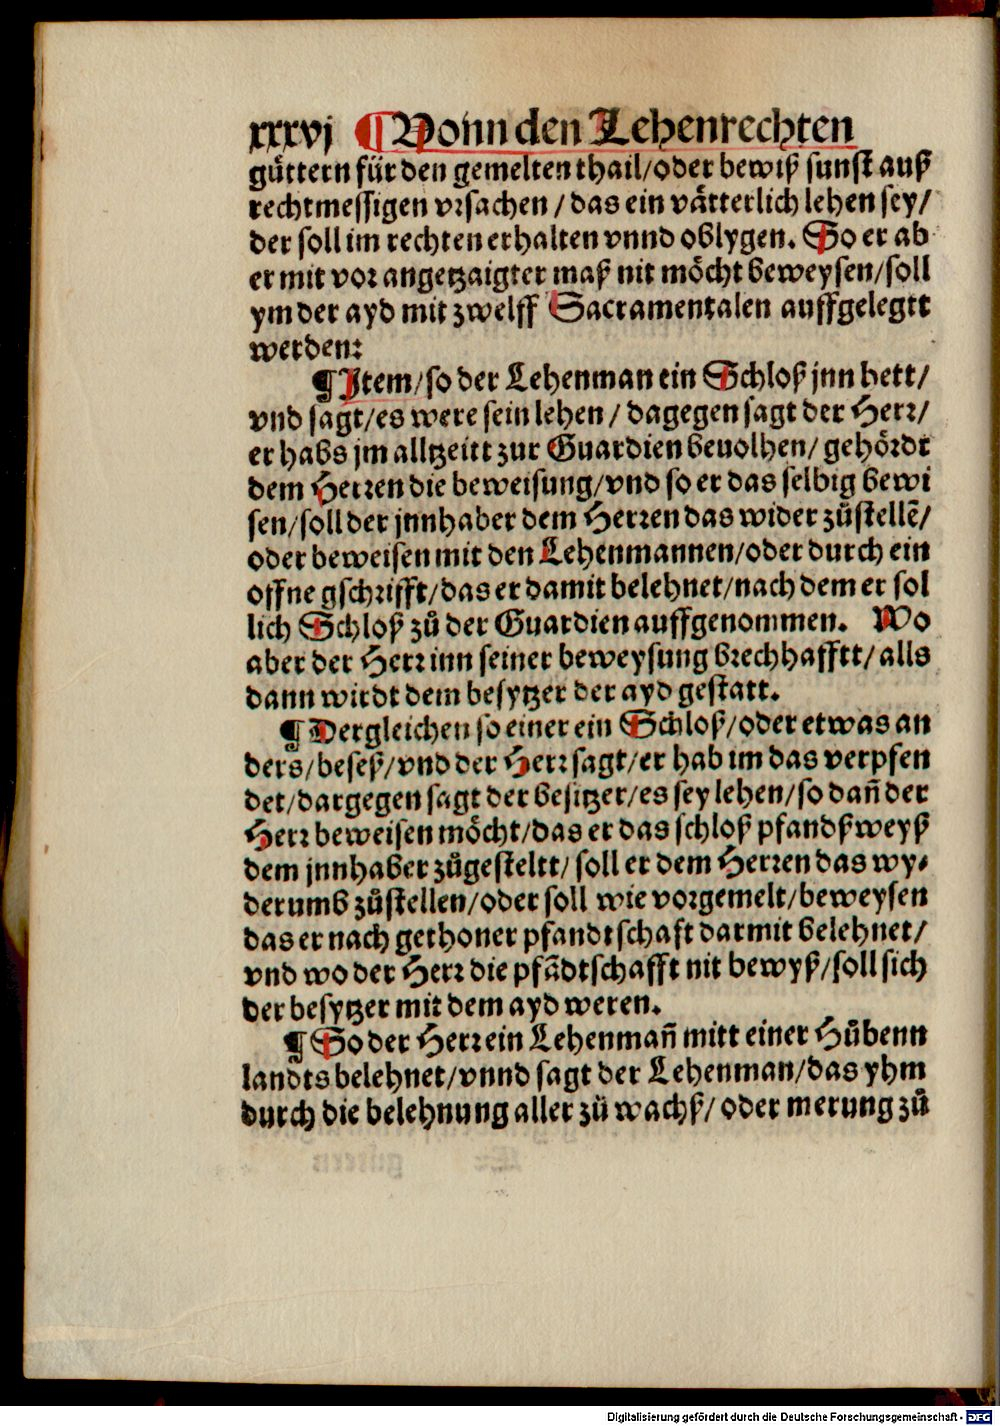 xxxvj ¶ Vonn den Lehenrechten
güttern für den gemelten thail/oder bewiß sunst auß
rechtmessigen vrsachen / das ein vätterlich lehen sey/
der soll im rechten erhalten vnnd oblygen. So er ab
er mit vor angetzaigter maß nit möcht beweysen/soll
ym der ayd mit zwelff Sacramentalen auffgelegtt
werden:
¶ Item/so der Lehenman ein Schloß jnn hett/
vnd sagt/es were sein lehen / dagegen sagt der Herr/
er habs jm alltzeitt zur Guardien beuolhen/ gehördt
dem Herren die beweisung/vnd so er das selbig bewi
sen/soll der jnnhaber dem Herren das wider zůstellẽ/
oder beweisen mit den Lehenmannen/oder durch ein
offne gschrifft/das er damit belehnet/nach dem er sol
lich Schloß zů der Guardien auffgenommen. Wo
aber der Herr inn seiner beweysung brechhafftt/alls
dann wirdt dem besytzer der ayd gestatt.
¶ Dergleichen so einer ein Schloß/oder etwas an
ders/beseß/vnd der Herr sagt/er hab im das verpfen
det/dargegen sagt der besitzer/es sey lehen/so dañ der
Herr beweisen möcht/das er das schloß pfandßweyß
dem jnnhaber zůgesteltt/ soll er dem Herren das wy⸗
derumb zůstellen/oder soll wie vorgemelt/beweysen
das er nach gethoner pfandtschaft darmit belehnet/
vnd wo der Herr die pfãdtschafft nit bewyß/soll sich
der besytzer mit dem ayd weren.
¶ So der Herr ein Lehenmañ mitt einer Hůbenn
landts belehnet/vnnd sagt der Lehenman/das yhm
durch die belehnung aller zů wachß/ oder merung zů
Digitalisierung gefördert durch die Deutsche Forschungsgemeinschaft - DFG